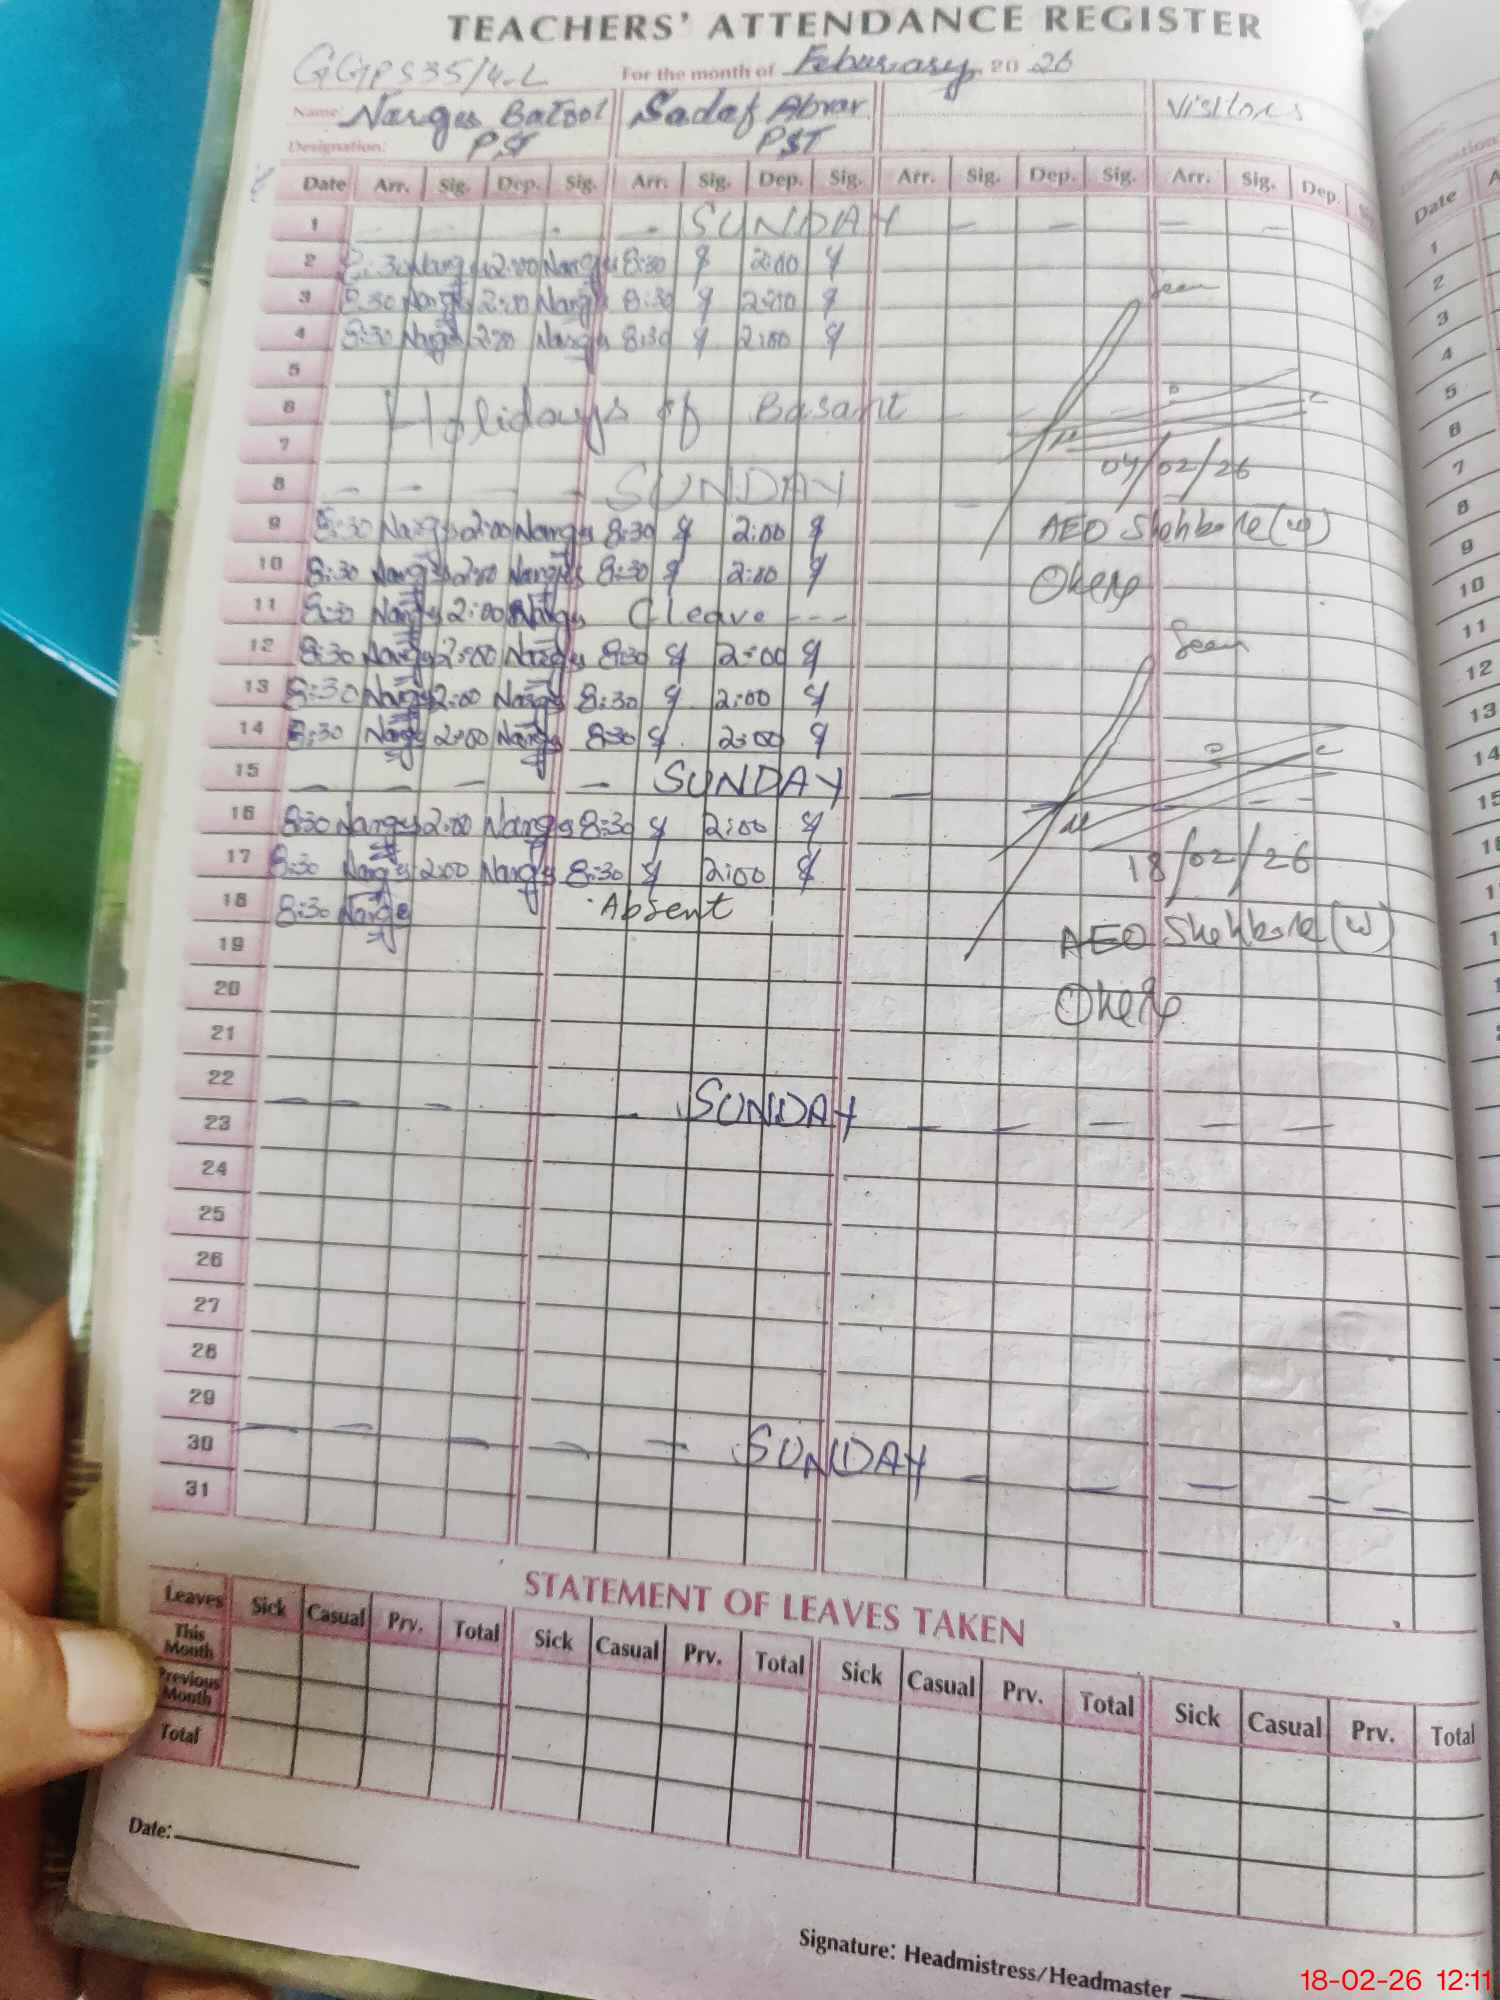 TEACHERS' ATTENDANCE REGISTER
GGPS 35/4-L For the month of Feburary 20 26
Name: Nargus Batool Sadaf Abrar Visitors
Designation: PST PST
Date Arr. Sig. Dep. Sig. Arr. Sig. Dep. Sig. Arr. Sig. Dep. Sig. Arr. Sig. Dep.
1 SUNDAY
2 8:30 2:00 8:30 2:00
3 8:30 2:00 8:30 2:00
4 8:30 2:00 8:30 2:00
Seen
5
6 Holidays of Basant
7
04/02/26
8 SUNDAY
9 8:30 2:00 8:30 2:00
AEO
10 8:30 2:00 8:30 2:00
11 8:30 2:00 C leave ---
12 8:30 2:00 8:30 2:00
Seen
13 8:30 2:00 8:30 2:00
14 8:30 2:00 8:30 2:00
15 SUNDAY
16 8:30 2:00 8:30 2:00
17 8:30 2:00 8:30 2:00
18/02/26
18 8:30 Absent
19 AEO
20
21
22
23 SUNDAY
24
25
26
27
28
29
30 SUNDAY
31
STATEMENT OF LEAVES TAKEN
Leaves Sick Casual Prv. Total Sick Casual Prv. Total Sick Casual Prv. Total Sick Casual Prv. Total
This Month
Previous Month
Total
Date:
Signature: Headmistress/Headmaster
18-02-26 12:11